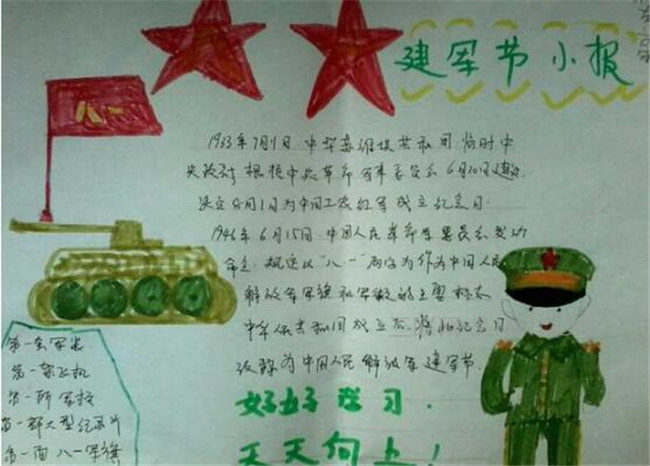 建军节小报
八一
1933年7月1日,中华苏维埃共和国临时中
央政府 根据中央革命军事委员会6月30日建议
决定8月1日为中国工农红军成立纪念日
1946年6月15日,中国人民革命军事委员会发动
命令,规定以"八一"两字为作为中国人民
解放军军旗和军徽的主要标志
中华人共和国成立后,将此纪念日
改称为中国人民解放军建军节
第一套军装
第一架飞机
第一所军校
第一部大型纪录片
第一面八一军旗
好好学习.
天天向上!